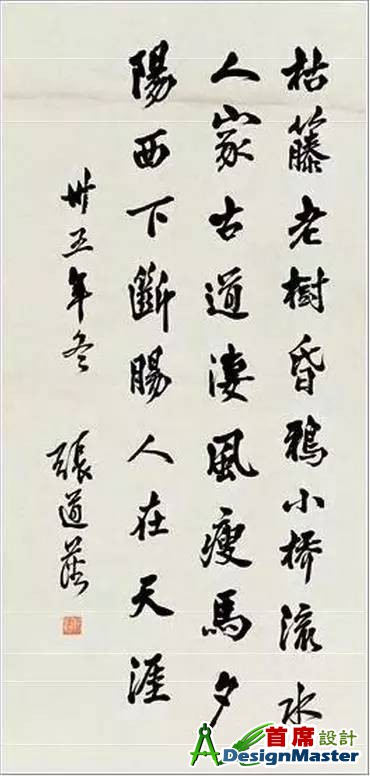 枯籐老樹昏鴉小橋流水
人家古道淒風瘦馬夕
陽西下斷腸人在天涯
卅五年冬 張道藩
首席設計
DesignMaster